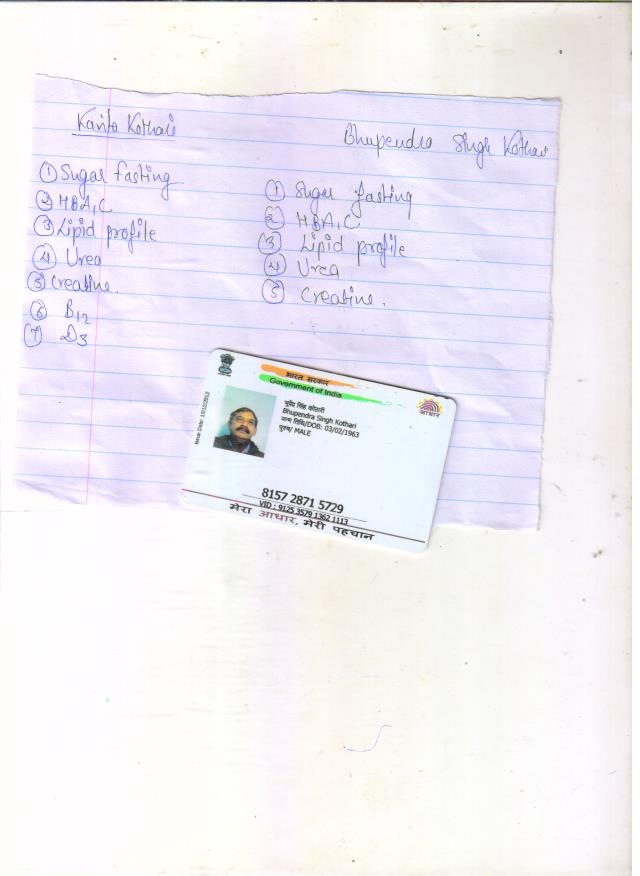 Kavita Kothari
① Sugar fasting
② HBA1C
③ Lipid profile
④ Urea
⑤ Creatine.
⑥ B12
⑦ D3
Bhupendra Singh Kothari
① Sugar fasting
② HBA1C
③ Lipid profile
④ Urea
⑤ Creatine.
भारत सरकार
Government of India
भूपेंद्र सिंह कोठारी
Bhupendra Singh Kothari
जन्म तिथि/DOB: 03/02/1963
पुरुष/ MALE
Issue Date: 10/12/2012
आधार
8157 2871 5729
VID : 9125 3579 1362 1113
मेरा आधार, मेरी पहचान